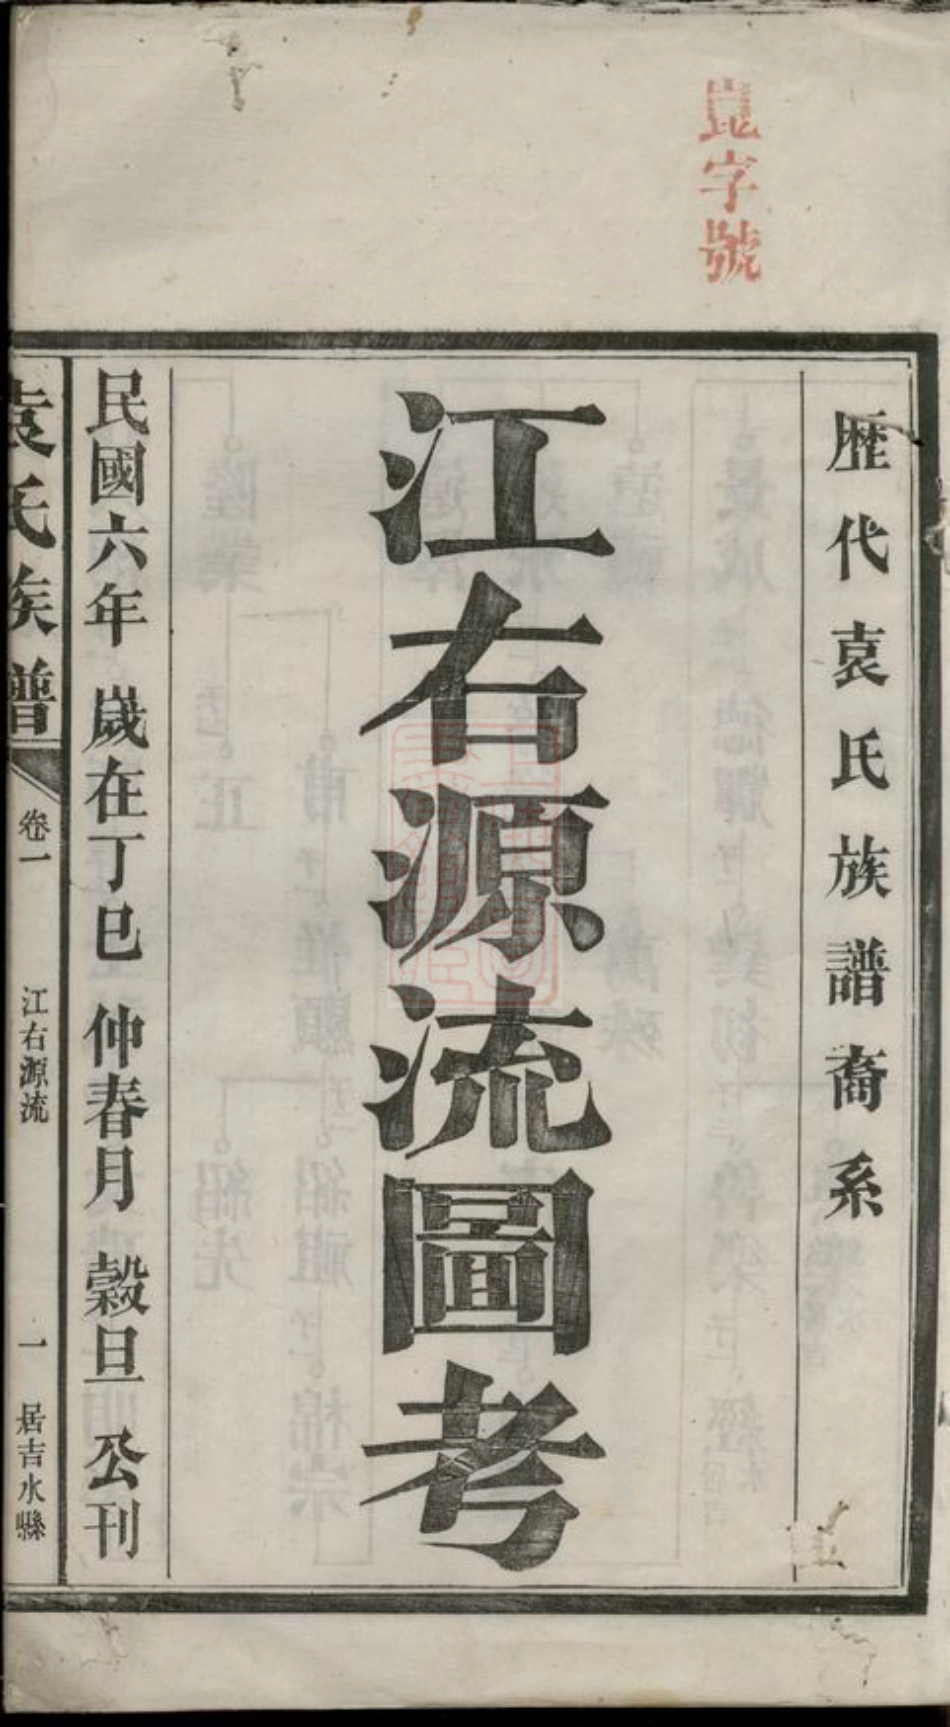 崑字號
歷代袁氏族譜裔系
江右源流圖考
民國六年 歲在丁巳 仲春月 穀旦 公刊
袁氏族譜
卷一
江右源流
一
居吉水縣